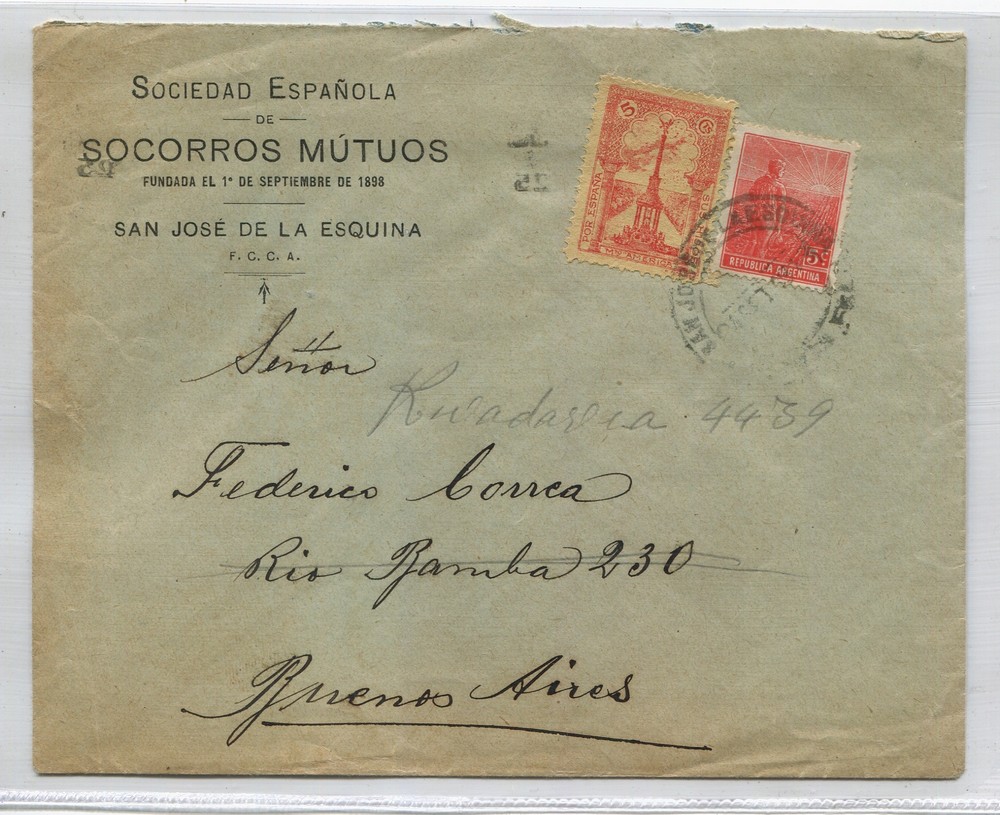 SOCIEDAD ESPAÑOLA
DE
SOCORROS MÚTUOS
FUNDADA EL 1º DE SEPTIEMBRE DE 1898
SAN JOSÉ DE LA ESQUINA
F. C. C. A.
5 Cs
POR ESPAÑA
5c
REPUBLICA ARGENTINA
SAN JOSE DE LA ESQ
Señor
Rivadavia 4439
Federico Correa
Rio Bamba 230
Buenos Aires